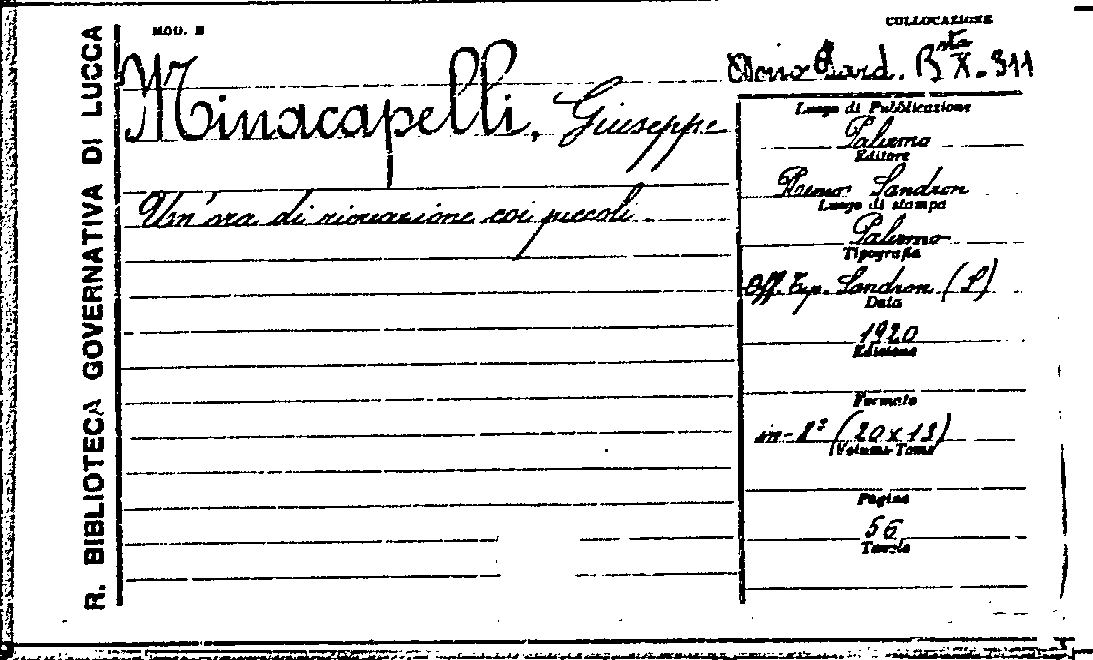 R. BIBLIOTECA GOVERNATIVA DI LUCCA
MOD. B
COLLOCAZIONE
Dono Biard. Bsta X-311
Minacapelli, Giuseppe
Un'ora di ricreazione coi piccoli
Luogo di Pubblicazione
Palermo
Editore
Remo Sandron
Luogo di stampa
Palermo
Tipografia
Off. Tip. Sandron (S)
Data
1920
Edizione
Formato
in-8° (20x13)
Volume-Tomo
Pagine
56
Tavole